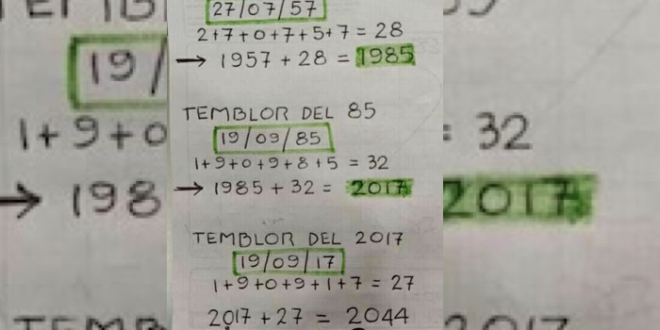 27/07/57
2+7+0+7+5+7 = 28
→ 1957 + 28 = 1985
TEMBLOR DEL 85
19/09/85
1+9+0+9+8+5 = 32
→ 1985 + 32 = 2017
TEMBLOR DEL 2017
19/09/17
1+9+0+9+1+7 = 27
2017 + 27 = 2044